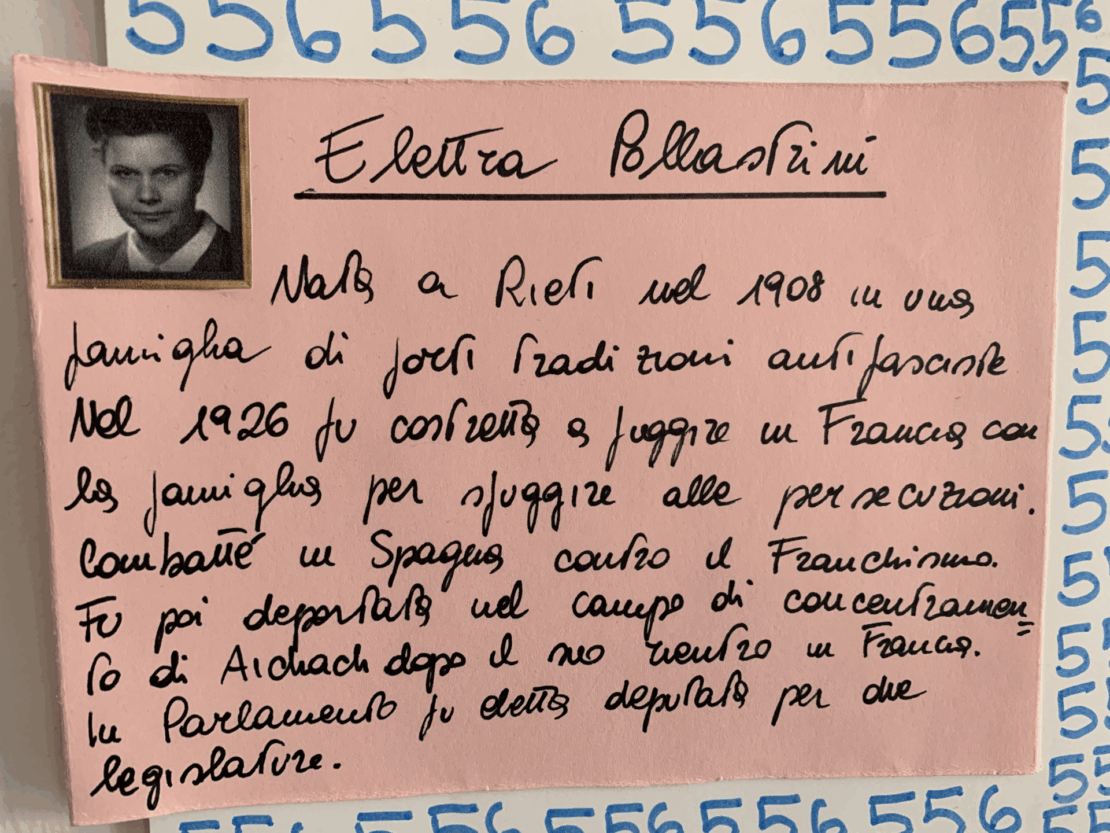 556 556 556 556 556
Elettra Pollastrini
Nata a Rieti nel 1908 in una
famiglia di forti tradizioni antifasciste
Nel 1926 fu costretta a fuggire in Francia con
la famiglia per sfuggire alle persecuzioni.
Combatté in Spagna contro il Franchismo.
Fu poi deportata nel campo di concentramen=
to di Aichach dopo il suo rientro in Francia.
In Parlamento fu eletta deputata per due
legislature.
556 556 556 556 556